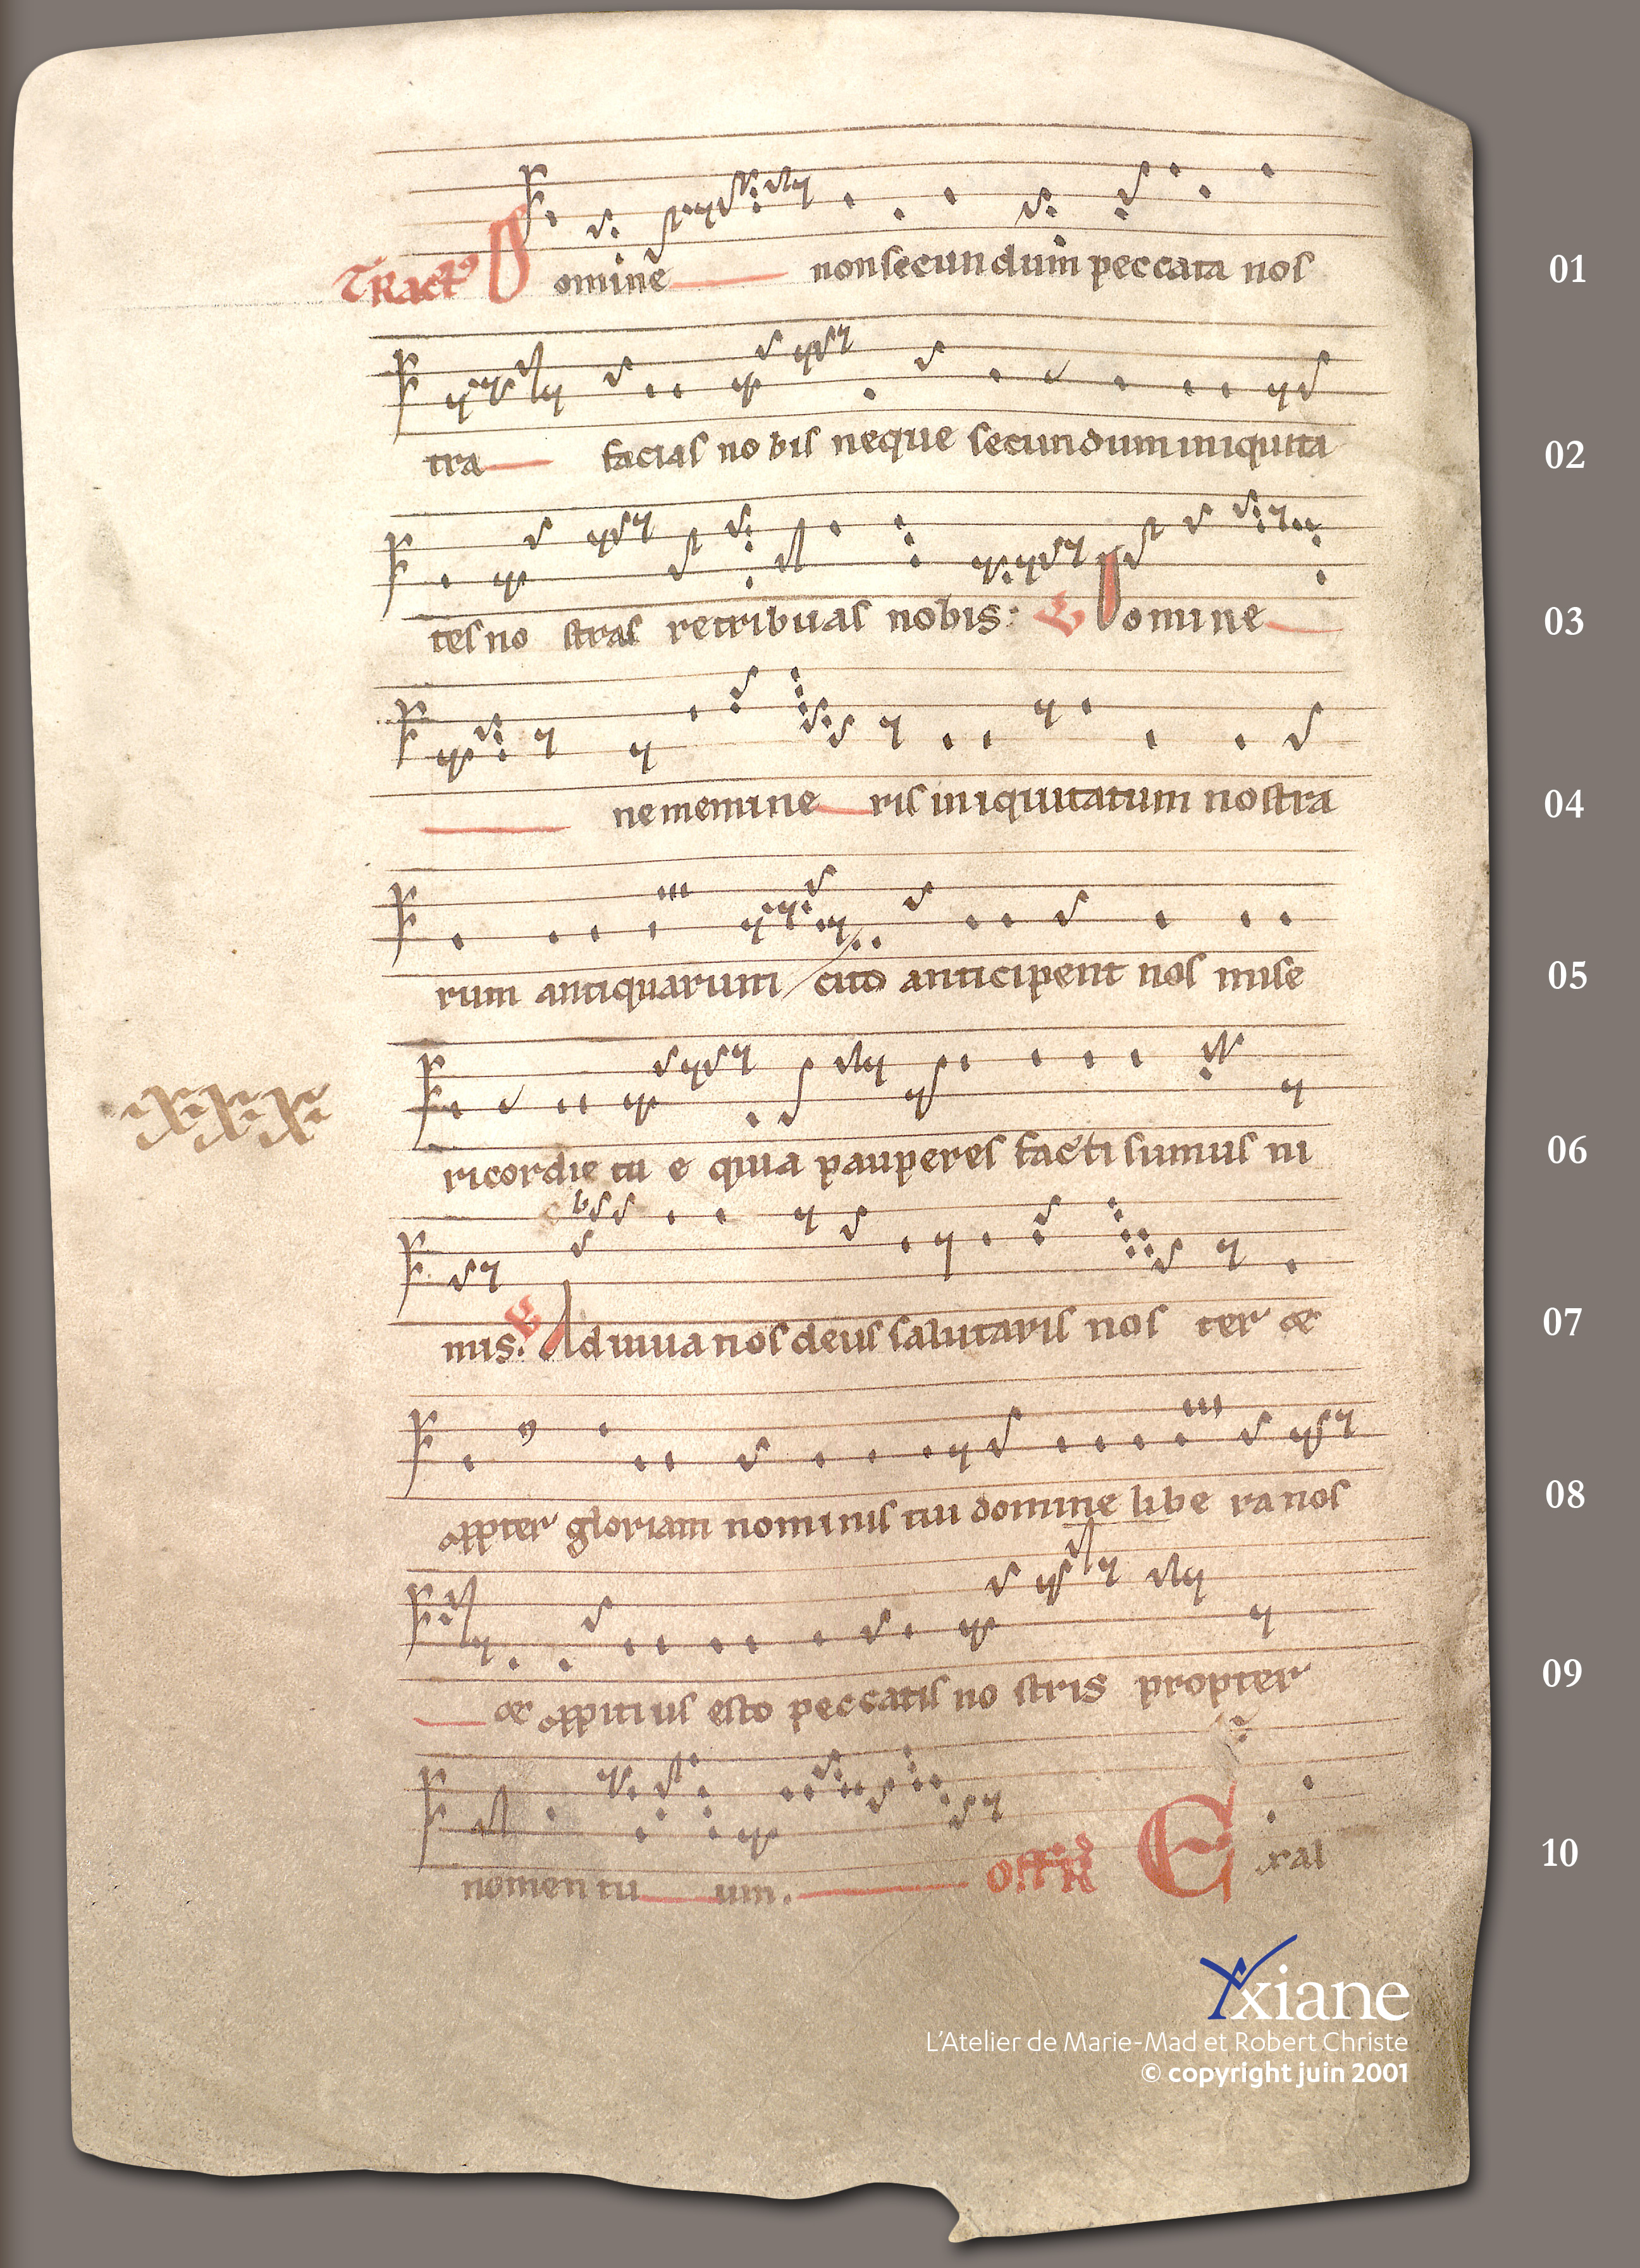 Tractꝰ Domine nonsecundum peccata nos 01
tra facias nobis neque secundum iniquita 02
tes no stras retribuas nobis: ℣ Domine 03
ne memine ris iniquitatum nostra 04
rum antiquarum cito anticipent nos mise 05
ricordie tu e quia pauperes facti sumus ni 06
mis. ℣ Adiuua nos deus salutaris nos ter & 07
ꝓpter gloriam nominis tui domine libe ra nos 08
& ꝓpitius esto peccatis no stris propter 09
nomen tu um. Offr̄ Exal 10
xxxx
Yxiane
L'Atelier de Marie-Mad et Robert Christe
© copyright juin 2001